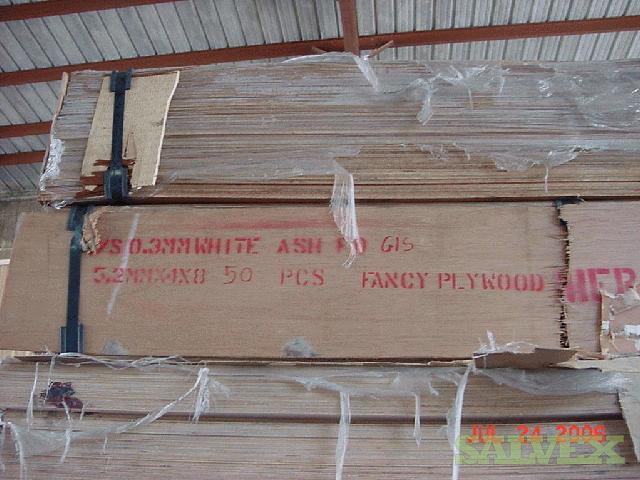 /S 0.3MM WHITE ASH GIS
5.2MMX4X8 50 PCS FANCY PLYWOOD
MER
JUL 24 2006
SALVEX